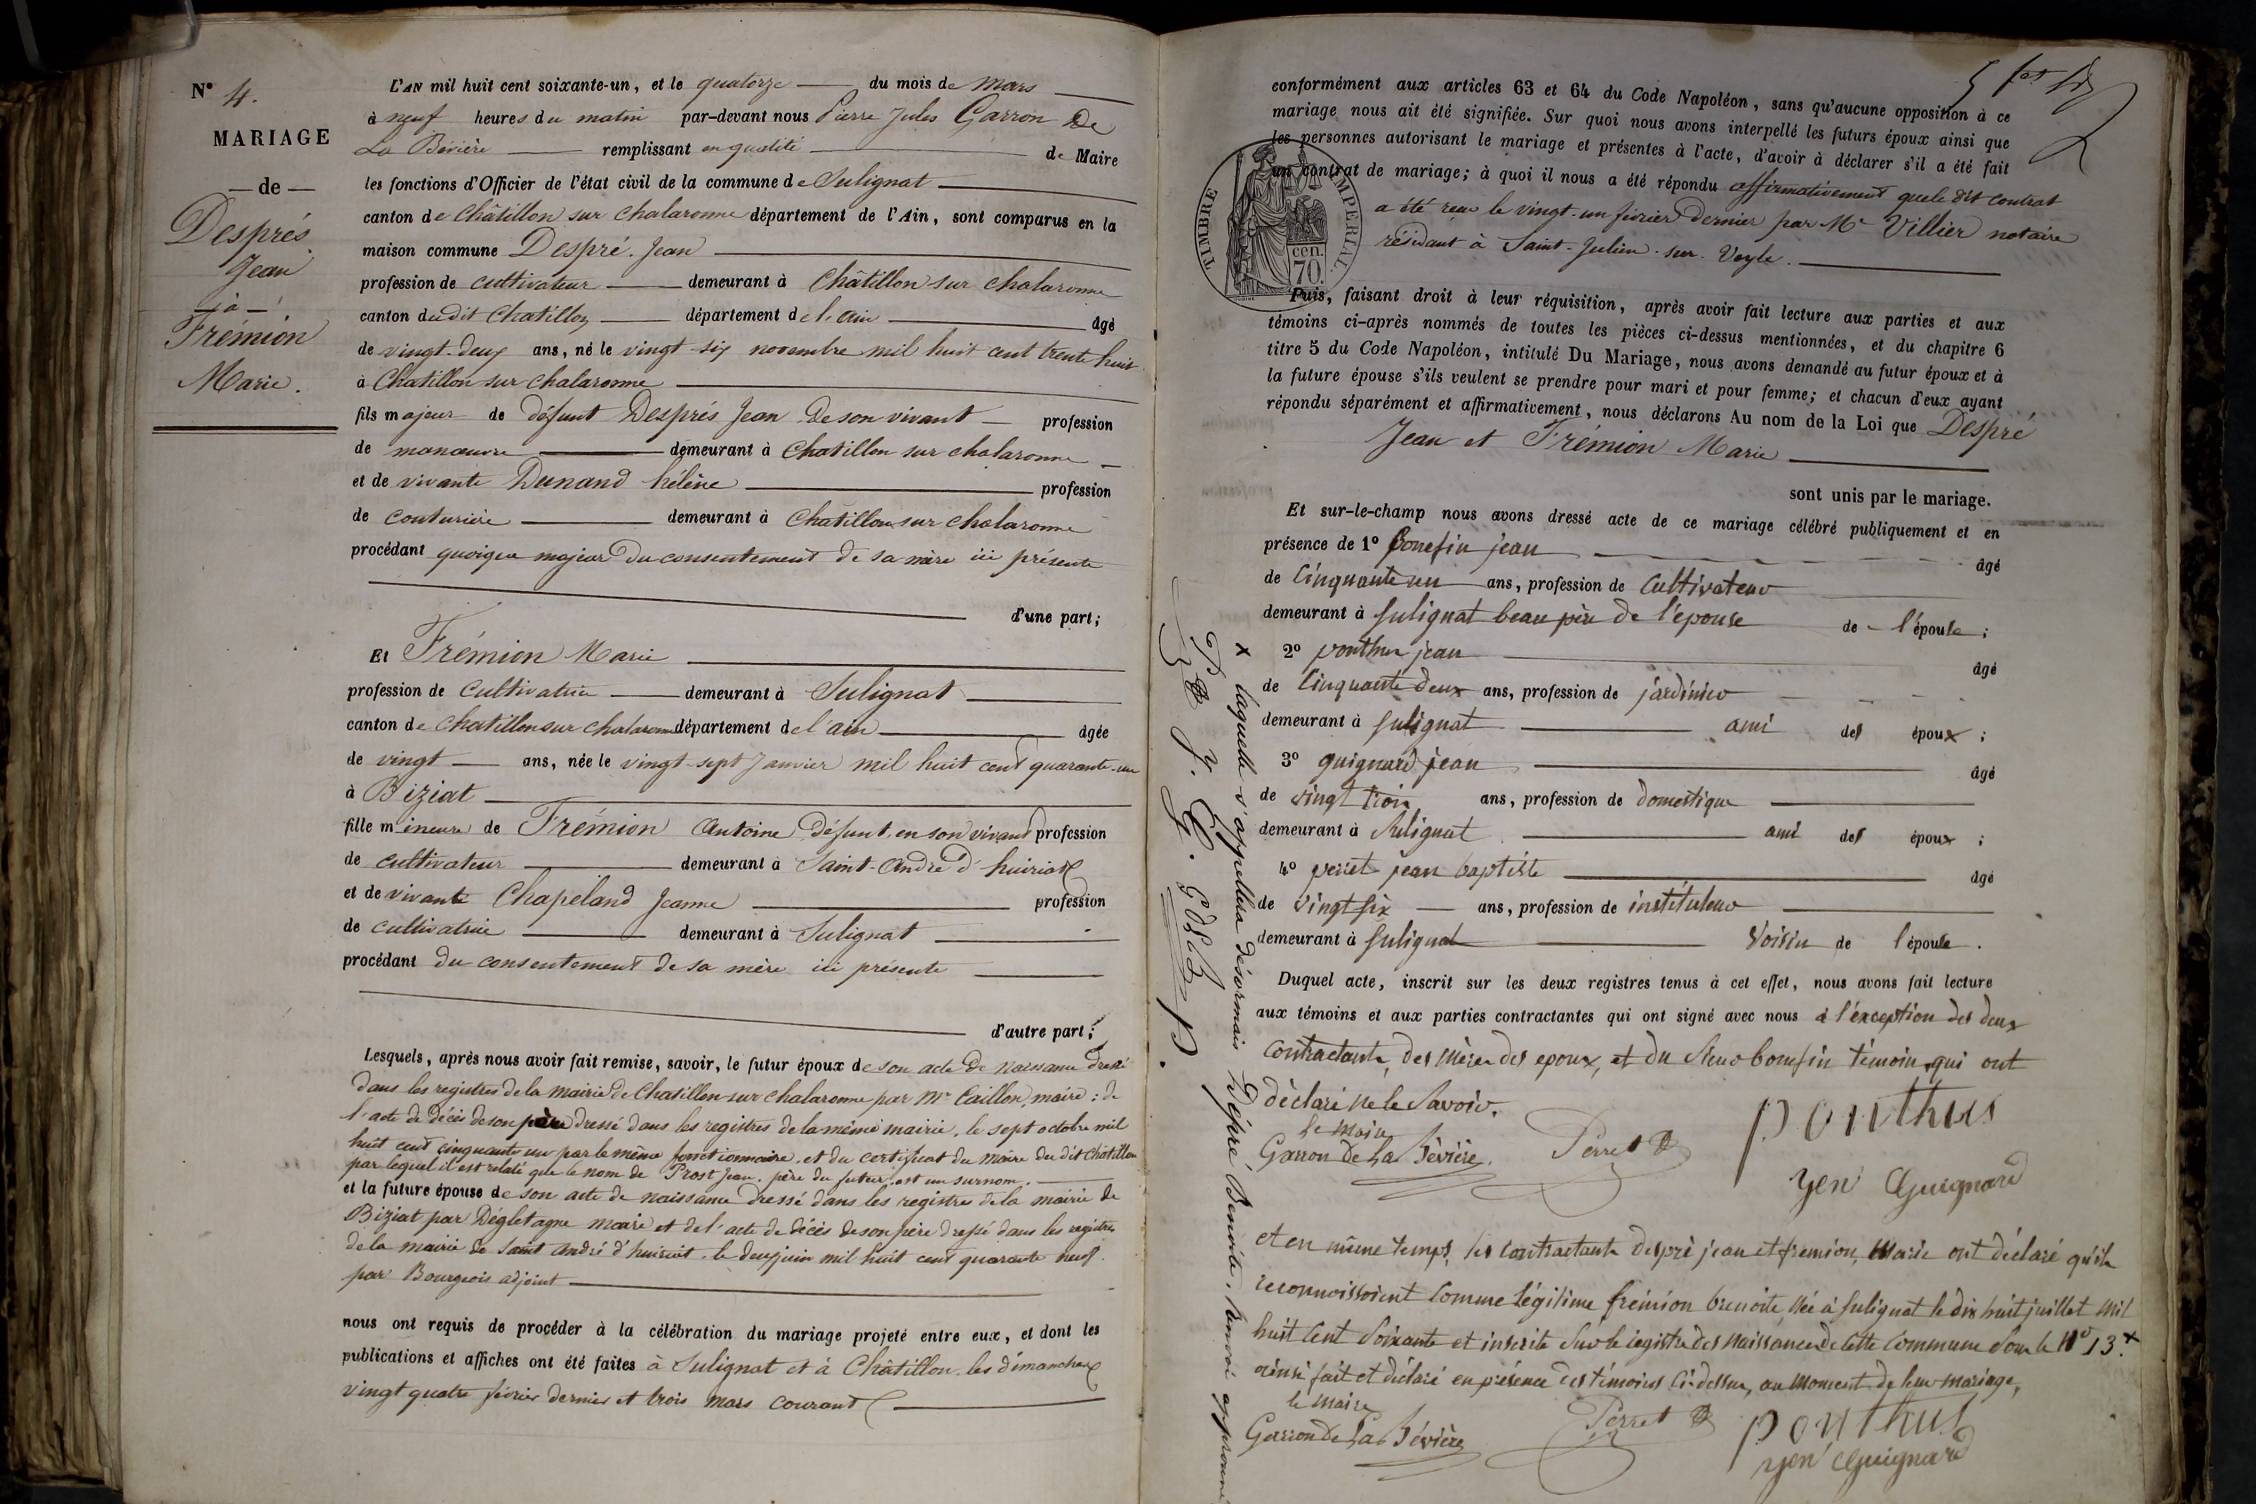 N° 4.
MARIAGE
— de —
Després
Jean
— à —
Frémion
Marie.
L'AN mil huit cent soixante-un, et le quatorze du mois de mars
à neuf heures du matin par-devant nous Pierre Jules Garron De
La Bévière remplissant en qualité de Maire
les fonctions d'Officier de l'état civil de la commune de Sulignat
canton de Châtillon sur Chalaronne département de l'Ain, sont comparus en la
maison commune Despré Jean
profession de cultivateur demeurant à Châtillon sur chalaronne
canton dudit Chatillon département de l'ain âgé
de vingt-deux ans, né le vingt-six novembre mil huit cent trente huit
à Chatillon sur chalaronne
fils majeur de défunt Després Jean de son vivant profession
de manœuvre demeurant à Chatillon sur chalaronne
et de vivante Dunand hélène profession
de couturière demeurant à Chatillon sur chalaronne
procédant quoique majeur du consentement de sa mère ici présente
d'une part;
Et Frémion Marie
profession de cultivatrice demeurant à Sulignat
canton de Chatillon sur chalaronne département de l'ain âgée
de vingt ans, née le vingt-sept Janvier mil huit cent quarante-un
à Biziat
fille mineure de Frémion Antoine défunt en son vivant profession
de cultivateur demeurant à Saint-André d'huiriat
et de vivante Chapeland Jeanne profession
de cultivatrice demeurant à Sulignat
procédant du consentement de sa mère ici présente
d'autre part;
Lesquels, après nous avoir fait remise, savoir, le futur époux de son acte de naissance dressé
dans les registres de la mairie de Chatillon sur chalaronne par Mr Caillon, maire; de
l'acte de décès de son père dressé dans les registres de la même mairie, le sept octobre mil
huit cent cinquante un par le même fonctionnaire, et du certificat du maire du dit Châtillon
par lequel il est relaté que le nom de Prost Jean, père du futur, est un surnom.
et la future épouse de son acte de naissance dressé dans les registres de la mairie de
Biziat par Dégletagne maire et de l'acte de décès de son père dressé dans les registres
de la mairie de Saint André d'huiriat, le deux juin mil huit cent quarante neuf.
par Bourgeois adjoint
nous ont requis de procéder à la célébration du mariage projeté entre eux, et dont les
publications et affiches ont été faites à Sulignat et à Châtillon les dimanches
vingt quatre février dernier et trois mars courant
conformément aux articles 63 et 64 du Code Napoléon, sans qu'aucune opposition à ce
mariage nous ait été signifiée. Sur quoi nous avons interpellé les futurs époux ainsi que
les personnes autorisant le mariage et présentes à l'acte, d'avoir à déclarer s'il a été fait
un contrat de mariage; à quoi il nous a été répondu affirmativement que le dit contrat
a été reçu le vingt-un février dernier par Me Villier notaire
résidant à Saint-Julien-sur-Veyle.
TIMBRE IMPÉRIAL
70 cen.
Puis, faisant droit à leur réquisition, après avoir fait lecture aux parties et aux
témoins ci-après nommés de toutes les pièces ci-dessus mentionnées, et du chapitre 6
titre 5 du Code Napoléon, intitulé Du Mariage, nous avons demandé au futur époux et à
la future épouse s'ils veulent se prendre pour mari et pour femme; et chacun d'eux ayant
répondu séparément et affirmativement, nous déclarons Au nom de la Loi que Despré
Jean et Frémion Marie
sont unis par le mariage.
Et sur-le-champ nous avons dressé acte de ce mariage célébré publiquement et en
présence de 1° Bonefin jean âgé
de Cinquante un ans, profession de cultivateur
demeurant à Sulignat beau père de l'épouse de l'épouse;
2° ponthus jean âgé
de Cinquante deux ans, profession de jardinier
demeurant à Sulignat ami des époux;
3° guignard jean âgé
de vingt trois ans, profession de domestique
demeurant à Sulignat ami des époux;
4° perret jean baptiste âgé
de vingt six ans, profession de instituteur
demeurant à Sulignat voisin de l'épouse.
Duquel acte, inscrit sur les deux registres tenus à cet effet, nous avons fait lecture
aux témoins et aux parties contractantes qui ont signé avec nous à l'exception des deux
contractants, des mères des epoux, et du Sieur bonefin témoin qui ont
déclaré ne le Savoir.
le maire
Garron de La Bévière. Perret Ponthus
yen Guignard
et en même temps, les contractants despré jean et fremion, Marie ont déclaré qu'ils
reconnoissoient Comme légitime frémion benoite, née à Sulignat le dix huit juillet mil
huit Cent Soixante et inscrite Sur le registre des naissances de cette Commune Sous le N° 13 x
ainsi fait et déclaré en présence des témoins Ci-dessus, au moment de leur mariage,
le maire
Garron de La Bévière Perret Ponthus
yen Guignard
x laquelle s'appellera désormais Despré Benoite, renvoi approuvé